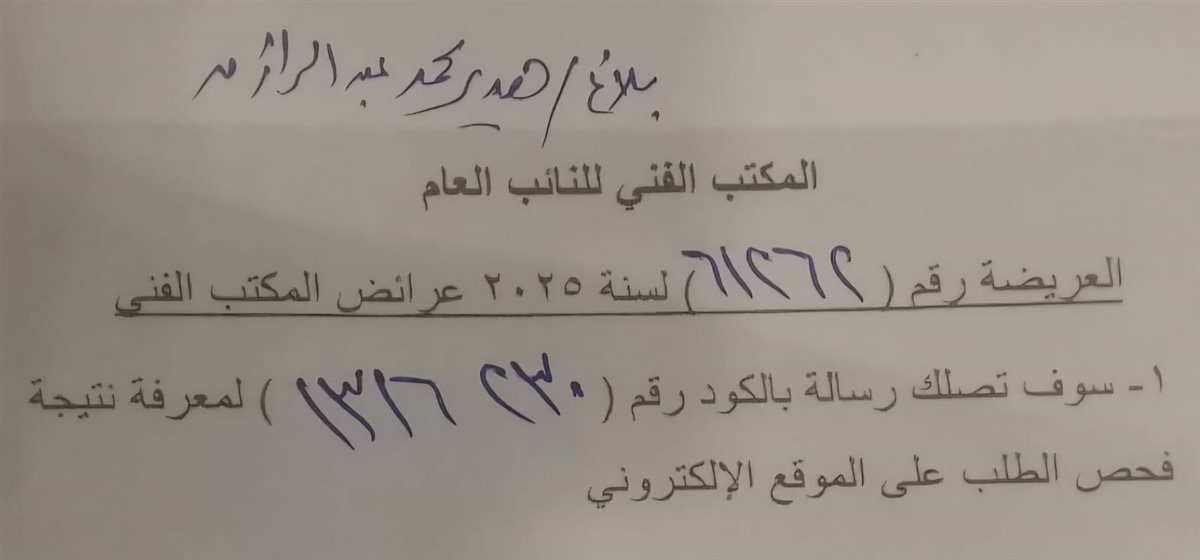 بلاغ / هدير محمد عبد الرازق
المكتب الفني للنائب العام
العريضة رقم ( ٦١٢٦٢ ) لسنة ٢٠٢٥ عرائض المكتب الفني
١- سوف تصلك رسالة بالكود رقم ( ) لمعرفة نتيجة
فحص الطلب على الموقع الإلكتروني